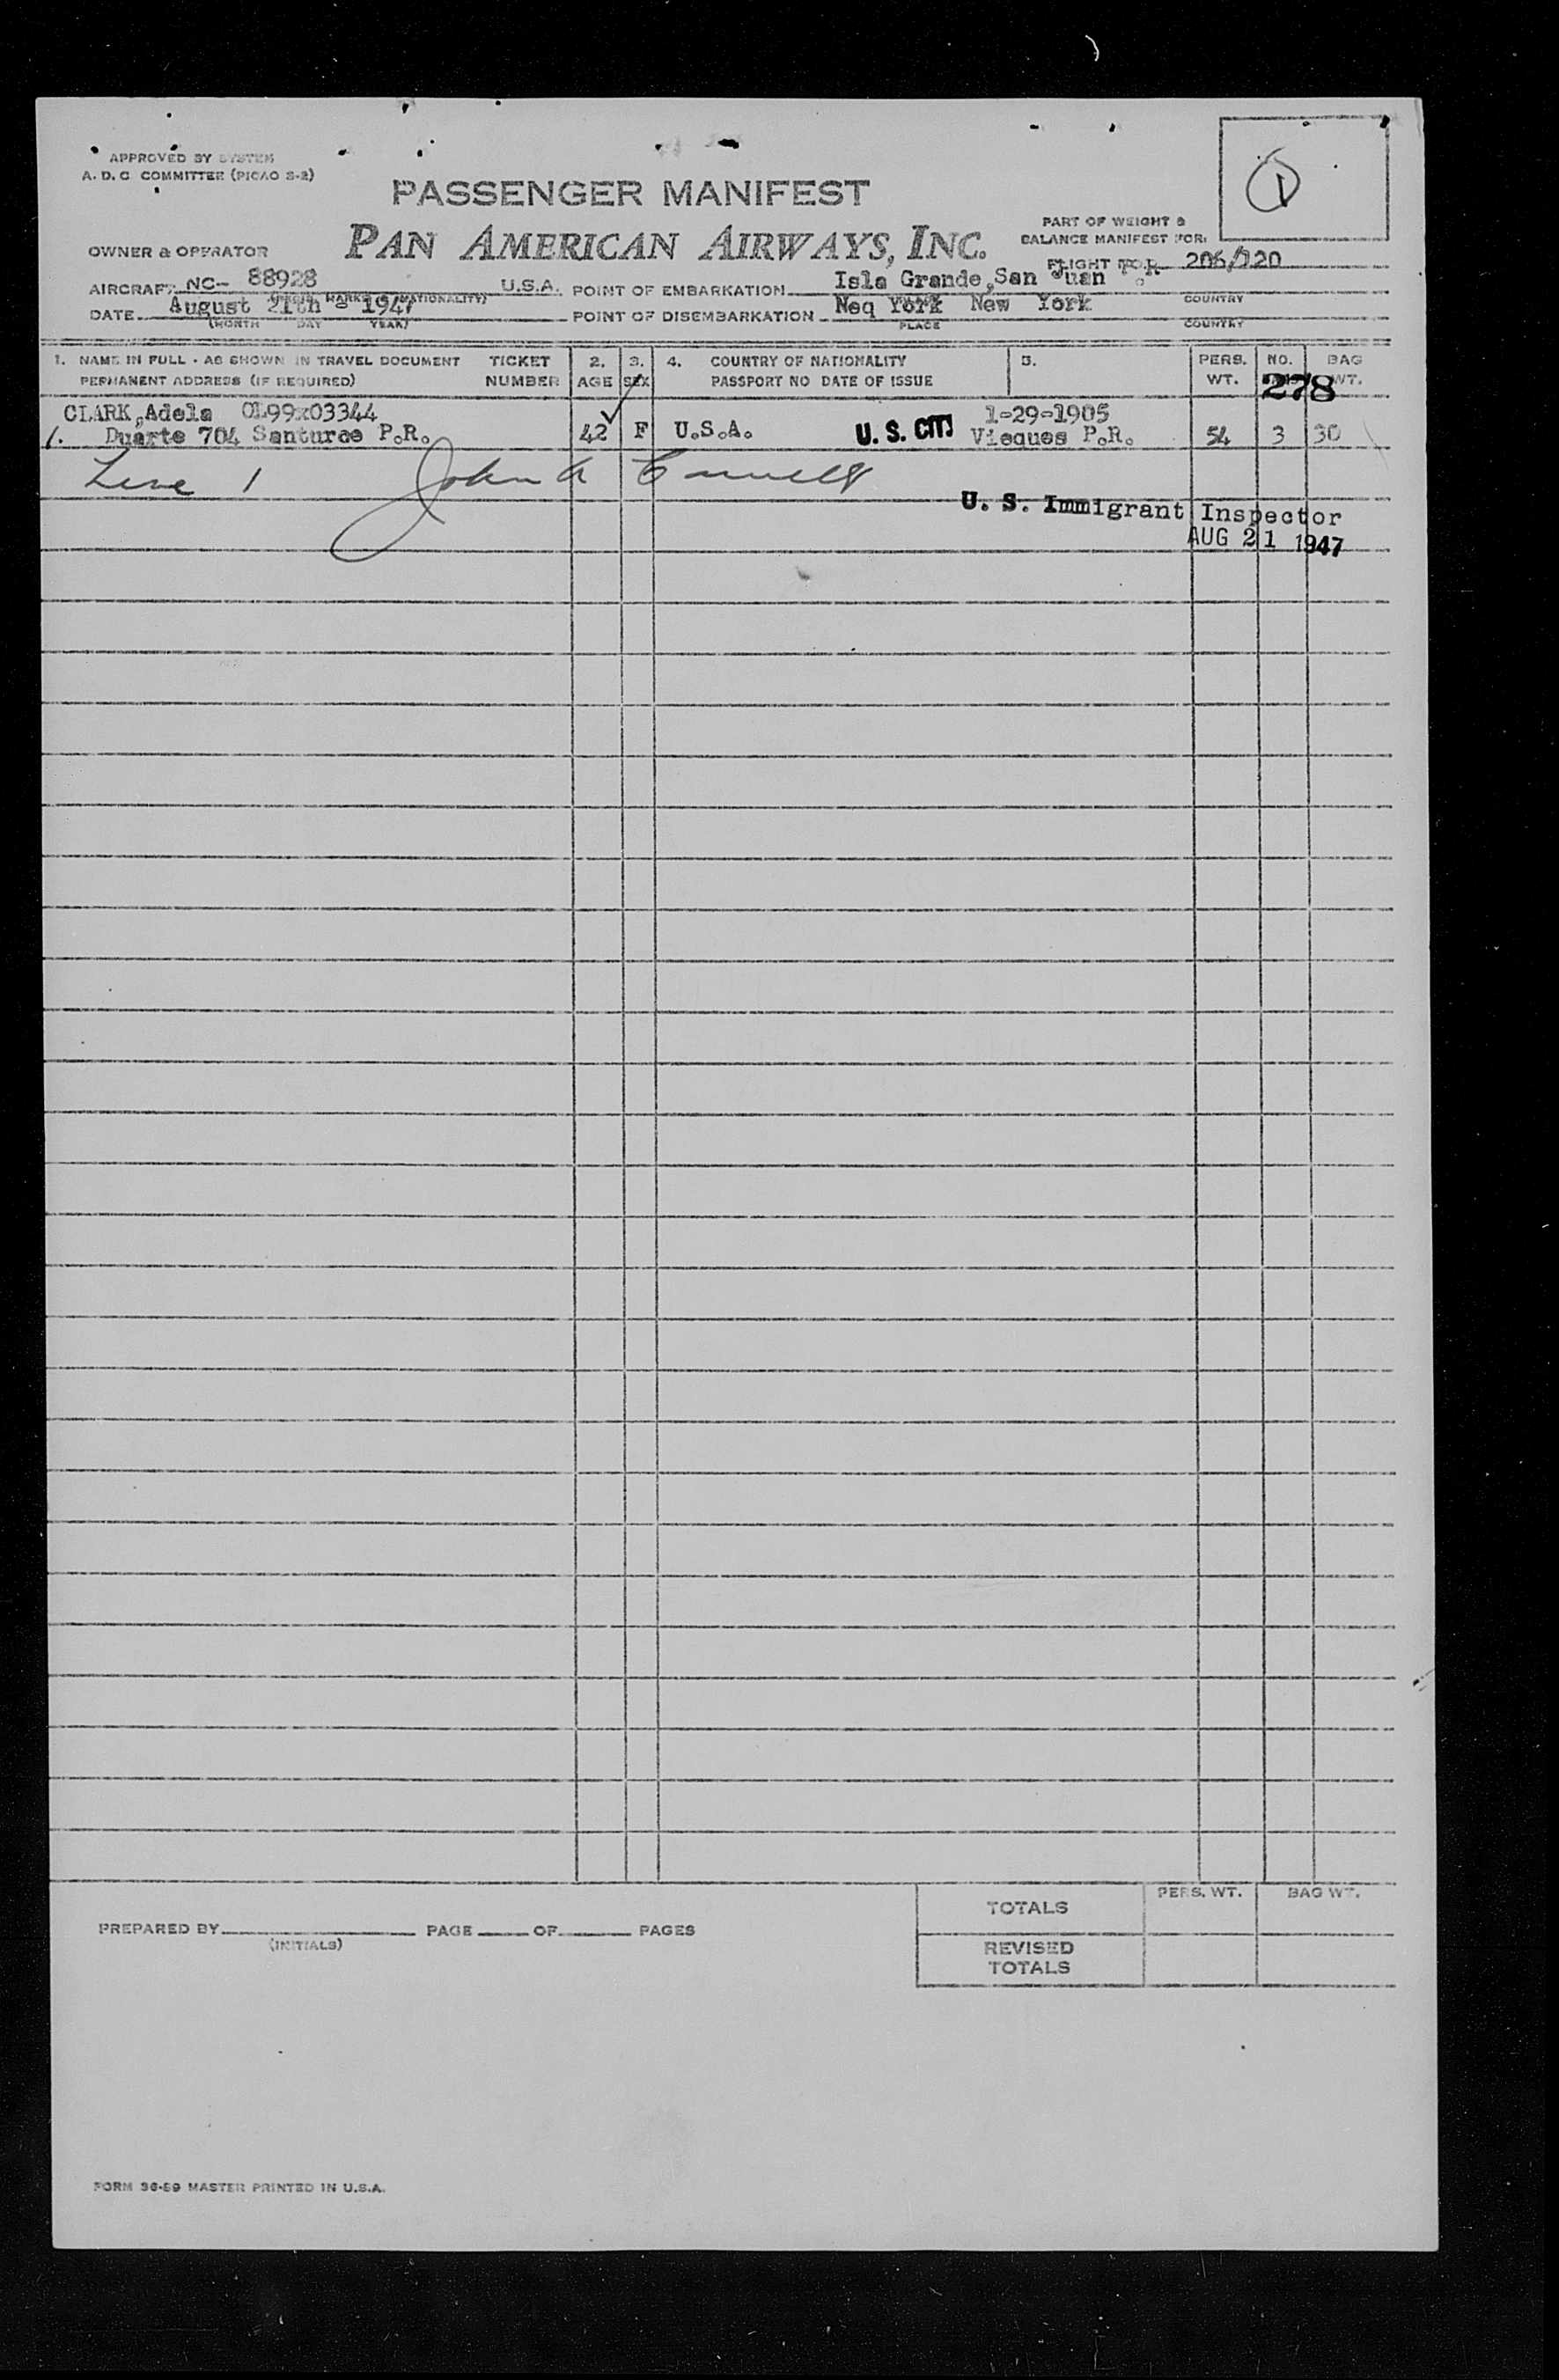 APPROVED BY SYSTEM
A. D. C COMMITTEE (PICAO S-2)
PASSENGER MANIFEST
1
PART OF WEIGHT &
BALANCE MANIFEST FOR:
OWNER & OPERATOR
PAN AMERICAN AIRWAYS, INC.
FLIGHT NO. 206/120
AIRCRAFT NC- 88928 U.S.A. POINT OF EMBARKATION Isla Grande,San Juan P.R.
COUNTRY
DATE August 21th 1947 POINT OF DISEMBARKATION Neq York New York
(MONTH DAY YEAR) PLACE COUNTRY
1. NAME IN FULL - AS SHOWN IN TRAVEL DOCUMENT TICKET 2. 3. 4. COUNTRY OF NATIONALITY 5. PERS. NO. BAG
PERMANENT ADDRESS (IF REQUIRED) NUMBER AGE SEX PASSPORT NO DATE OF ISSUE WT. WT.
278
CLARK,Adela 1-29-1905
1. Duarte 704 Santurce P.R. 42 F U.S.A. U. S. CIT. Vieques P.R. 54 3 30
Line 1 John A
U. S. Immigrant Inspector
AUG 21 1947
TOTALS PERS. WT. BAG WT.
PREPARED BY PAGE OF PAGES
(INITIALS)
REVISED
TOTALS
FORM 36-59 MASTER PRINTED IN U.S.A.